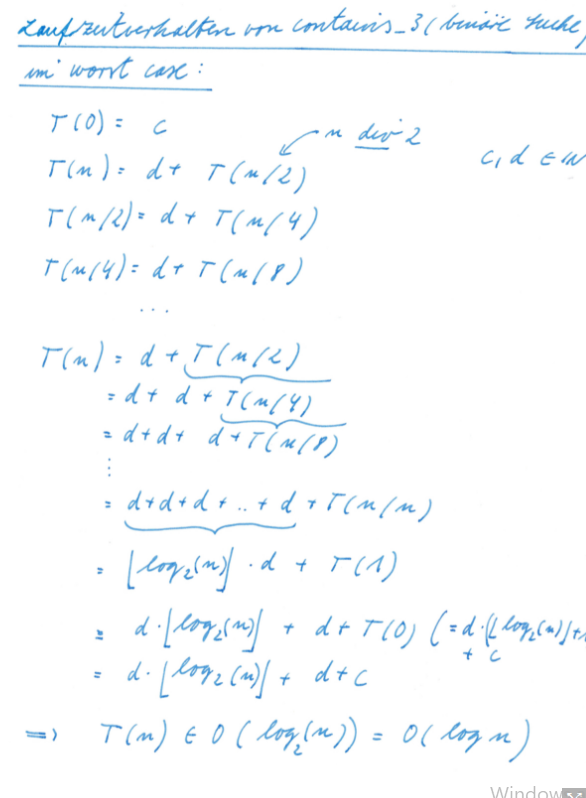 Laufzeitverhalten von contains_3 (binäre Suche)
im worst case:
T(0) = c
n div 2
T(n) = d + T(n/2)
c, d ∈ ℕ
T(n/2) = d + T(n/4)
T(n/4) = d + T(n/8)
...
T(n) = d + T(n/2)
= d + d + T(n/4)
= d + d + d + T(n/8)
⋮
= d + d + d + .. + d + T(n/n)
= ⌊log₂(n)⌋ · d + T(1)
= d · ⌊log₂(n)⌋ + d + T(0) (= d · (⌊log₂(n)⌋ + 1
+ c
= d · ⌊log₂(n)⌋ + d + c
=> T(n) ∈ O(log₂(n)) = O(log n)
Window